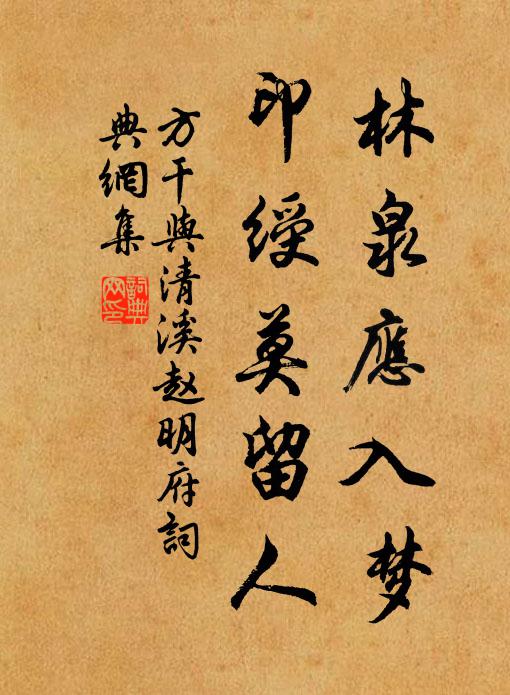 林泉應入梦
印綬莫留人
方干與清溪赵明府詞
典網集
詞典
网印